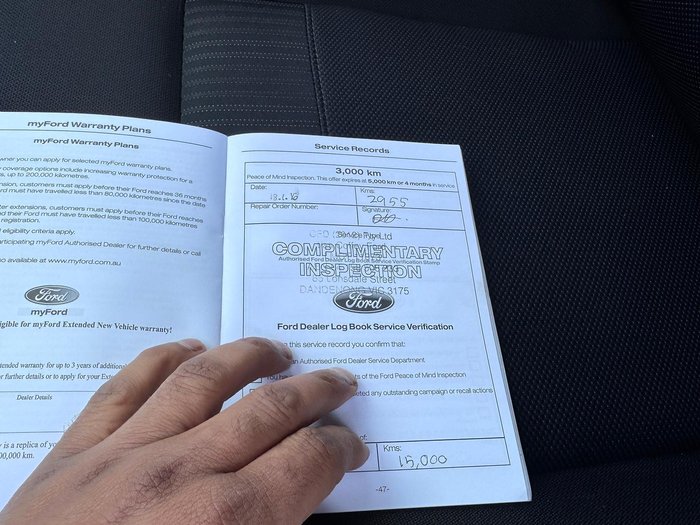 myFord Warranty Plans
myFord Warranty Plans
owner you can apply for selected myFord warranty plans.
coverage options include increasing warranty protection for a
s, up to 200,000 kilometres.
nsion, customers must apply before their Ford reaches 36 months
rd must have travelled less than 80,000 kilometres since the
date
er extensions, customers must apply before their Ford reaches
nd their Ford must have travelled less than 100,000 kilometres
registration.
l eligibility criteria apply.
articipating myFord Authorised Dealer for further details or call
so available at www.myford.com.au
Ford
myFord
igible for myFord Extended New Vehicle warranty!
tended warranty for up to 3 years of additional
r further details or to apply for your Exte
Dealer Details
y is a replica of yo
00,000 km.
Service Records
3,000 km
Peace of Mind Inspection. This offer expires at 5,000 km or 4 months in service
Date:
Kms:
2955
Repair Order Number:
Signature:
Service Type
Ltd
COMPLIMENTARY
Authorised Ford Dealer Log Book Service Verification Stamp
INSPECTION
Lonsdale Street
DANDENONG VIC 3175
Ford
Ford Dealer Log Book Service Verification
this service record you confirm that:
an Authorised Ford Dealer Service Department
ts of the Ford Peace of Mind Inspection
leted any outstanding campaign or recall actions
of:
Kms:
15,000
-47-